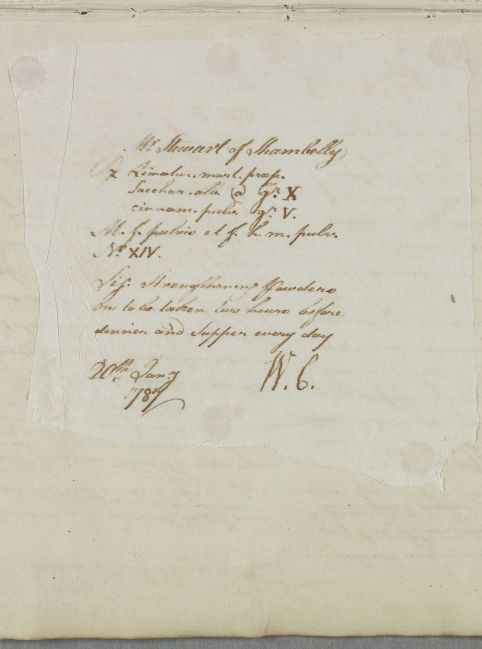 Mr. Stewart of Shambelly
℞ Limatur. mart. prep.
Sacchar. alb. @ gr. X
cinnam. pulv. gr. V.
M. f. pulvis et f. h. m. pulv.
No. XIV.
Sig. Strengthening Powders
one to be taken two hours before
dinner and Supper every day
20th Jany
1784
W. C.